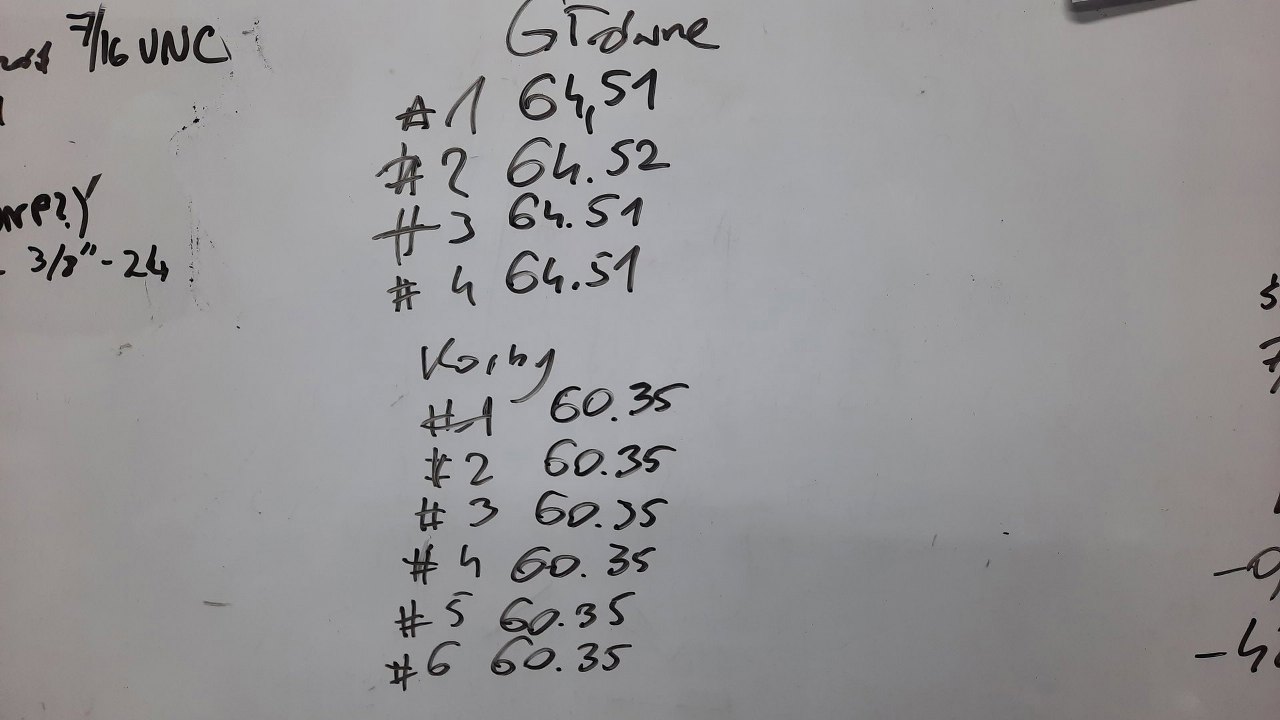 7/16 UNC
3/8" - 24
Główne
#1 64,51
#2 64.52
#3 64.51
#4 64.51
Korby
#1 60.35
#2 60.35
#3 60.35
#4 60.35
#5 60.35
#6 60.35